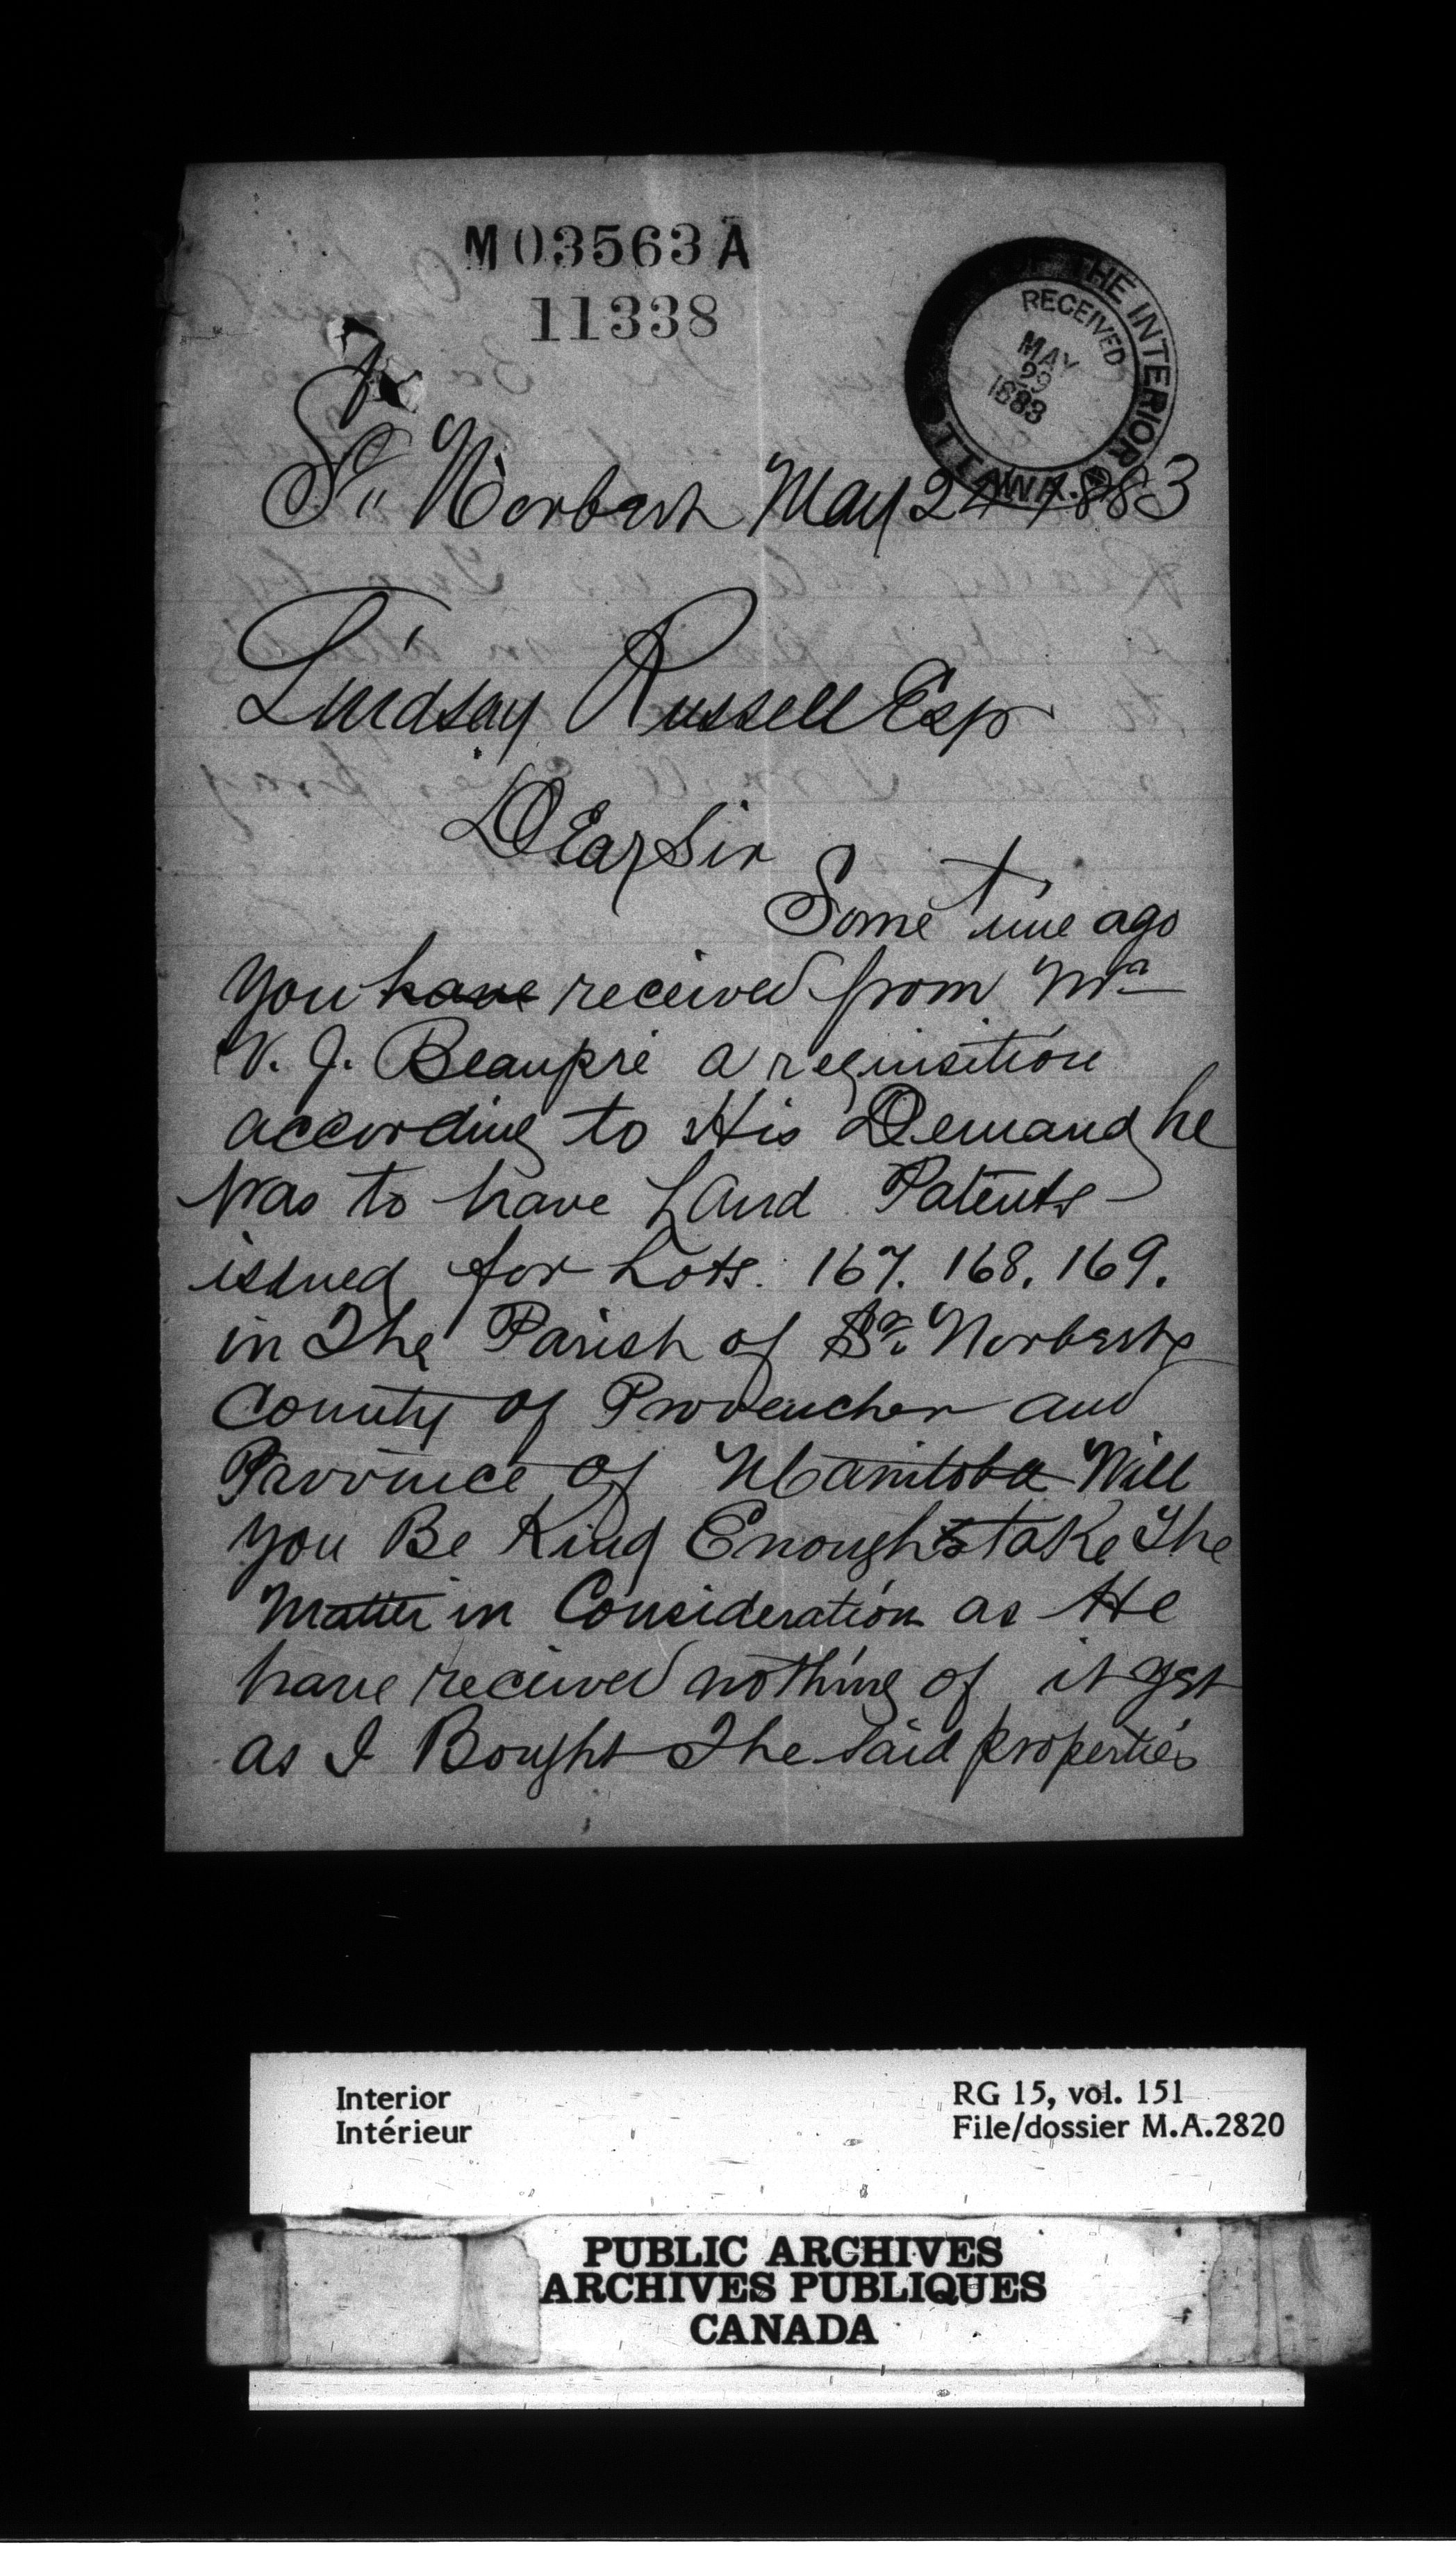 M03563A
11338
OF THE INTERIOR
RECEIVED
MAY
29
1883
OTTAWA.
St. Norbert May 24 1883
Lindsay Russell Esq
Dear Sir
Some time ago
you have received from Mr
V. J. Beaupré a requisition
according to His Demand he
Was to have Land Patents
issued for Lots. 167. 168. 169.
in The Parish of St. Norbert
County of Provencher and
Province of Manitoba Will
you Be Kind Enough to take The
Matter in Consideration as He
have received nothing of it yet
as I Bought The said properties
Interior
Intérieur
RG 15, vol. 151
File/dossier M.A.2820
PUBLIC ARCHIVES
ARCHIVES PUBLIQUES
CANADA